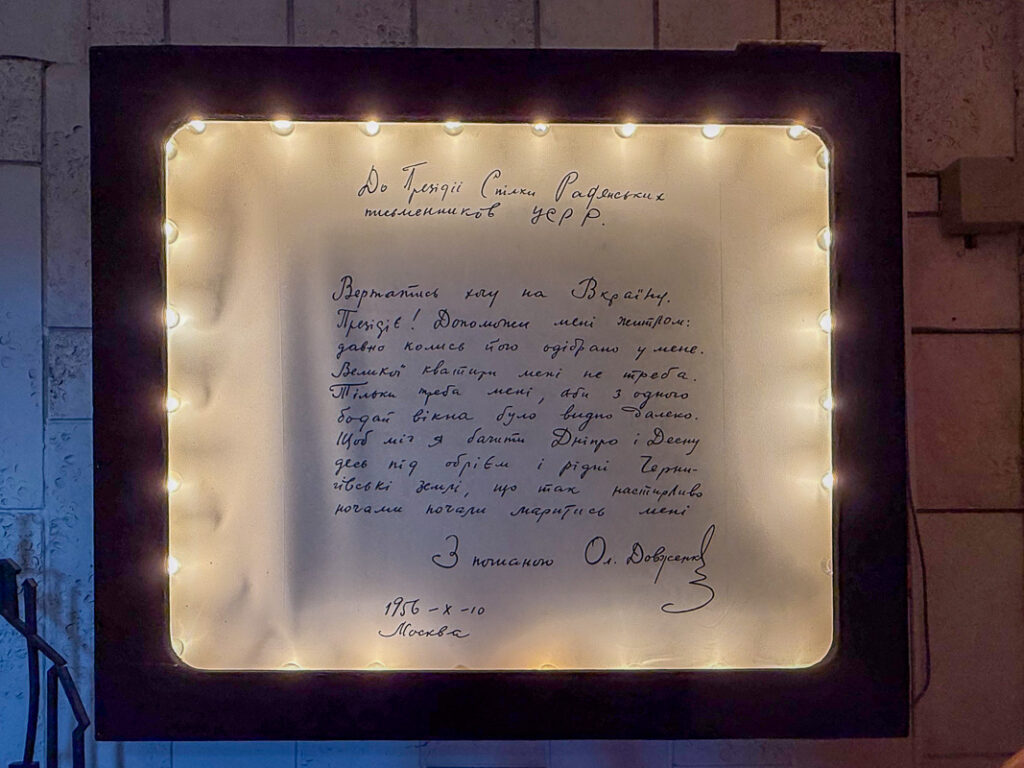 До Презідії Спілки Радянських
письменників УСРР.
Вертатись хочу на Вкраїну.
Презідіє! Допоможи мені житлом:
давно колись його одібрано у мене.
Великої квартири мені не треба.
Тільки треба мені, аби з одного
бодай вікна було видно далеко.
Щоб міг я бачити Дніпро і Десну
десь під обрієм і рідні Черни-
гівські землі, що так настирливо
ночами почали маритись мені
З пошаною Ол. Довженко
1956-X-10
Москва